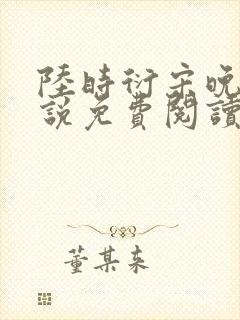 陸時衍宋晚
說免費閱讀
董某来